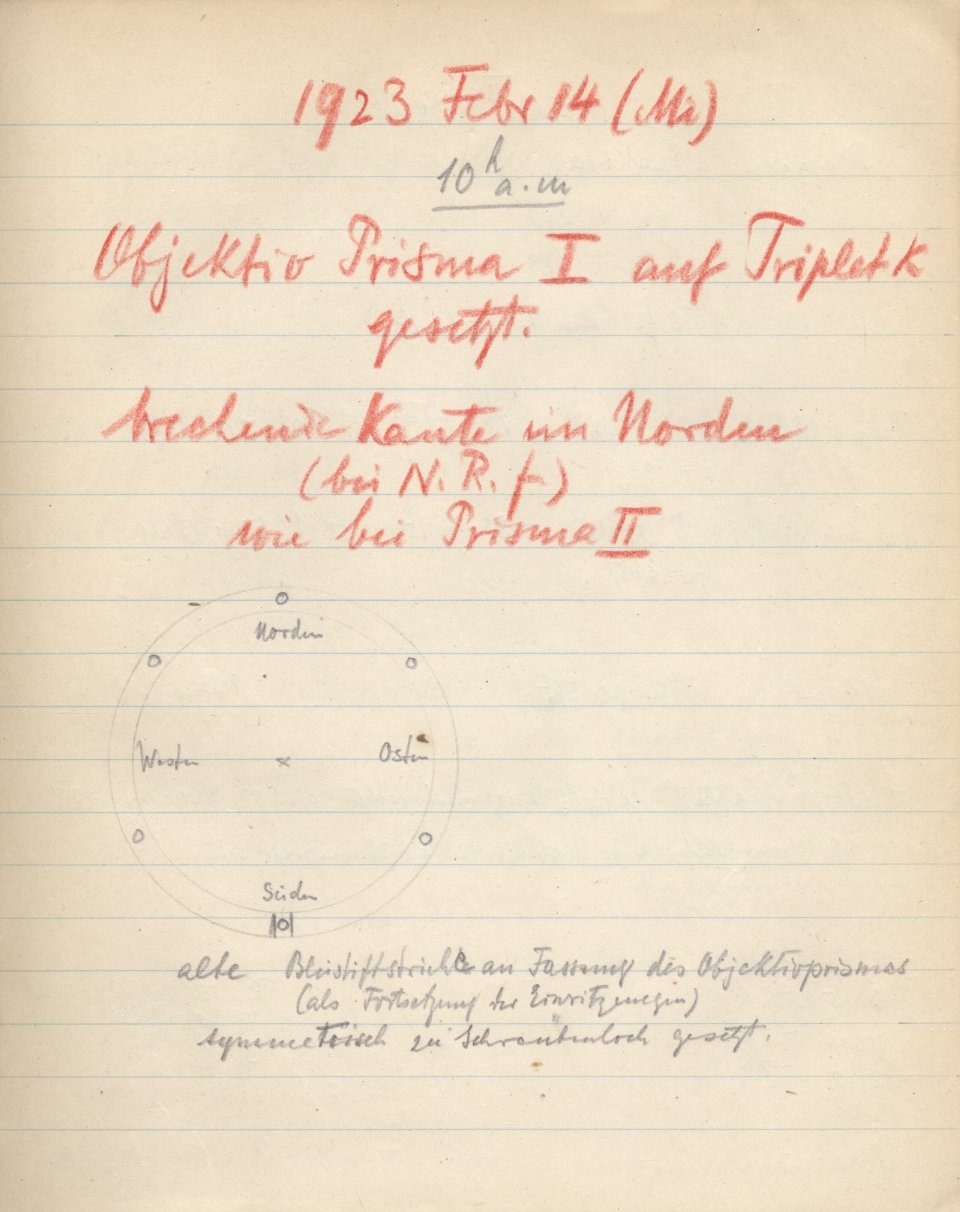 1923 Febr 14 (Mi)
10 h a.m
Objektiv Prisma I auf Triplet K
gesetzt.
brechende Kante im Norden
(bei N. R. f)
wie bei Prisma II
Norden
Westen × Osten
Süden
alte Bleistiftstriche an Fassung des Objektivprismas
(als Fortsetzung der Einritzungen)
symmetrisch zu Schraubenloch gesetzt.